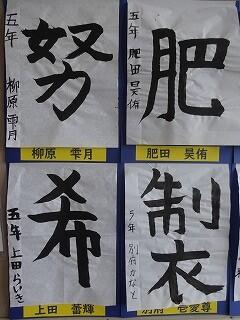 努
五年 柳原 雫月
柳原 雫月
肥
五年 肥田 昊侑
肥田 昊侑
希
五年 上田 らいき
上田 蕾輝
製
5年 別府 かなと
別府 壱愛尊